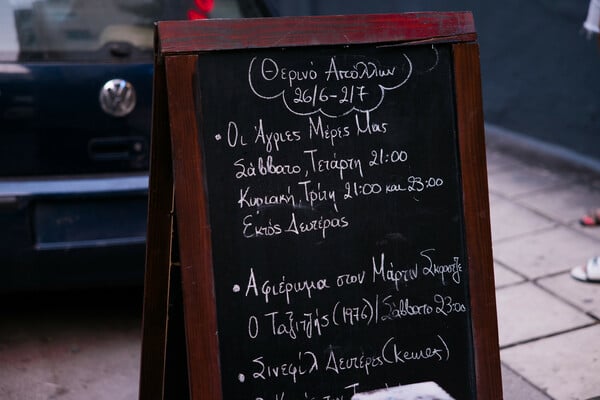 Θερινό Απόλλων
26/6-2/7
• Οι Άγριες Μέρες Μας
Σάββατο, Τετάρτη 21:00
Κυριακή Τρίτη 21:00 και 23:00
Εκτός Δευτέρας
• Αφιέρωμα στον Μάρτιν Σκορσέζε
Ο Ταξιτζής (1976)/Σάββατο 23:00
• Σινεφίλ Δευτέρες (Κεινες)